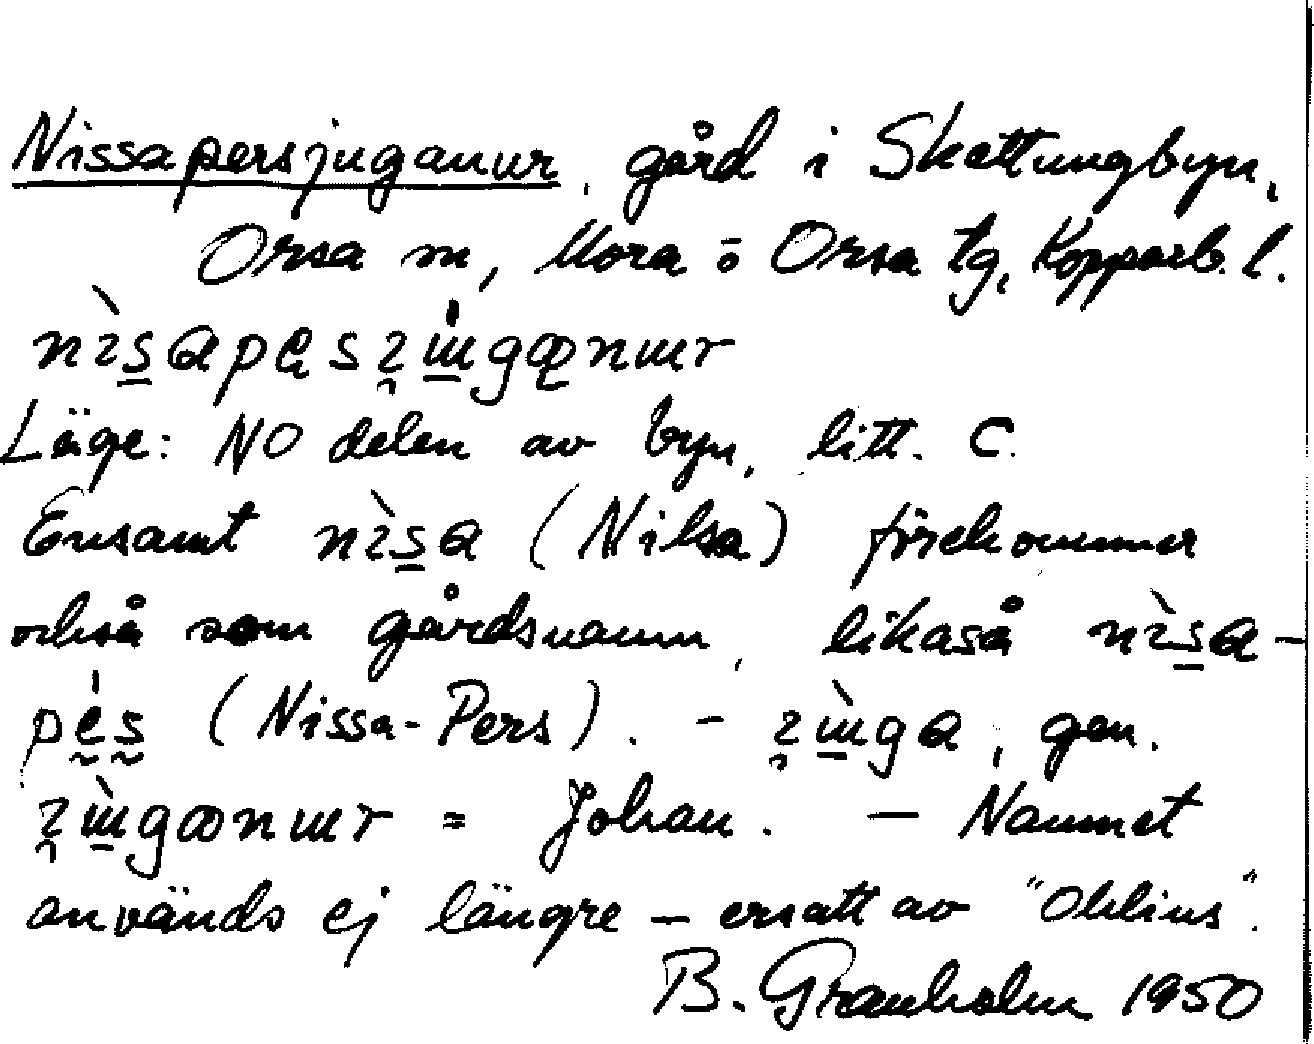 Nissapersjuganur, gård i Skattungbyn,
Orsa sn, Mora o Orsa tg, Kopparb. l.
Läge: NO delen av byn, litt. C.
Ensamt nìsa (Nilsa) förekommer
också som gårdsnamn, likaså nìsa-
(Nissa-Pers). - gen.
= Johan. — Namnet
används ej längre — ersatt av "Ohlins".
B. Granholm 1950